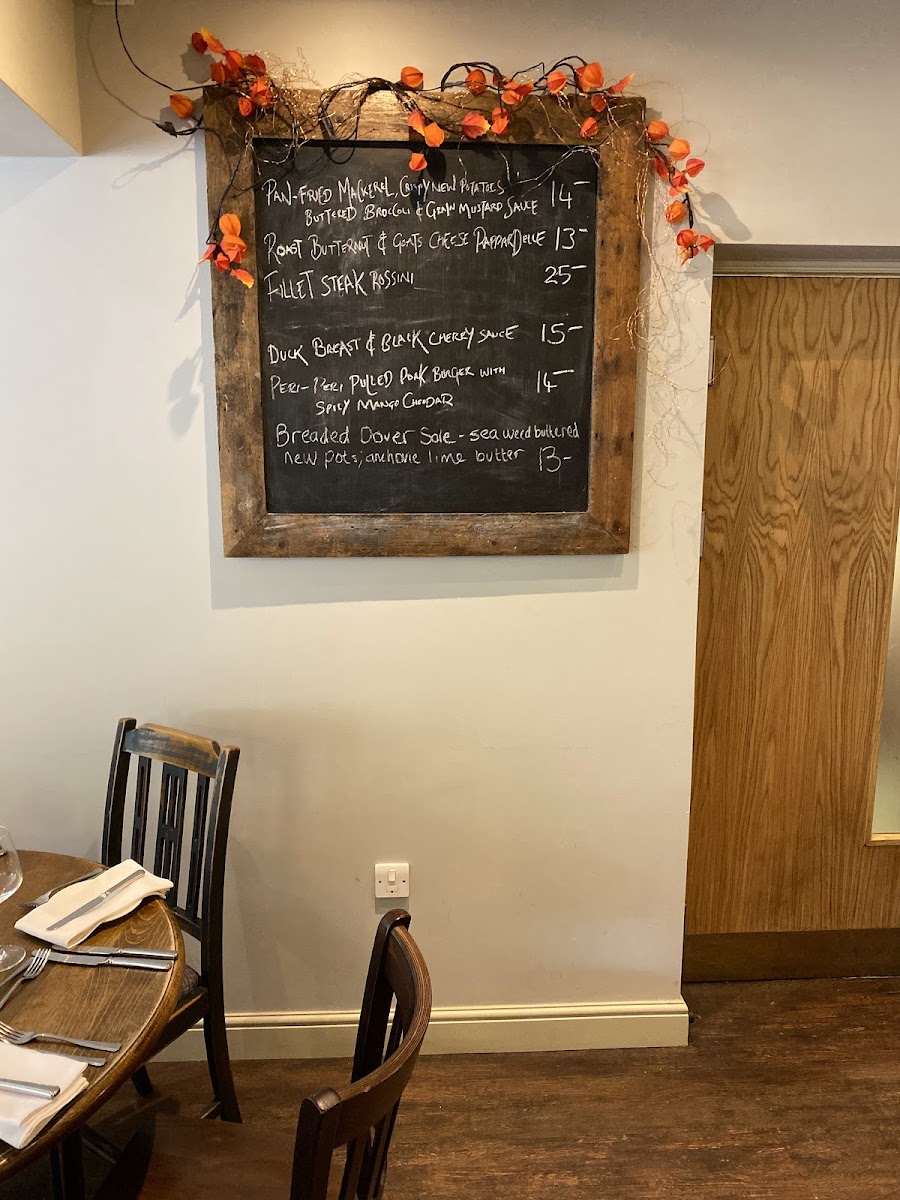 PAN-FRIED MACKEREL, CRISPY NEW POTATOES 14-
BUTTERED BROCCOLI & GRAIN MUSTARD SAUCE
ROAST BUTTERNUT & GOATS CHEESE PAPPARDELLE 13-
FILLET STEAK ROSSINI 25-
DUCK BREAST & BLACK CHERRY SAUCE 15-
PERI-PERI PULLED PORK BURGER WITH 14-
SPICY MANGO CHEDDAR
Breaded Dover Sole - seaweed buttered
new pots; anchovie lime butter 13-